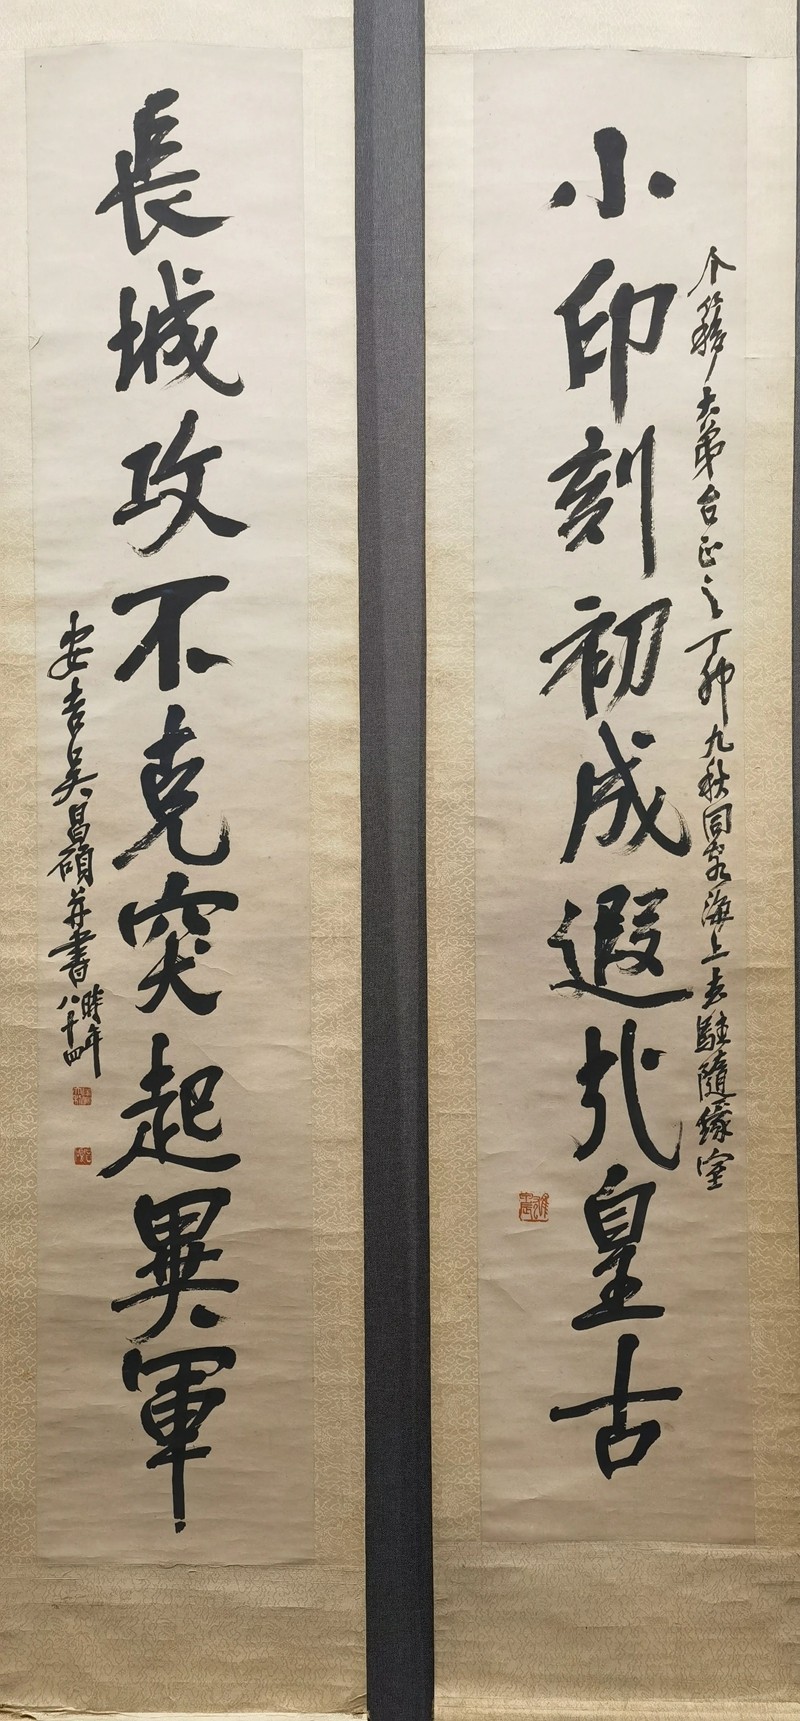 小印刻初成遐於皇古
个簃大弟台正之丁卯九秋同客海上去駐隨緣室
長城攻不克突起異軍
安吉吳昌碩并書時年八十四